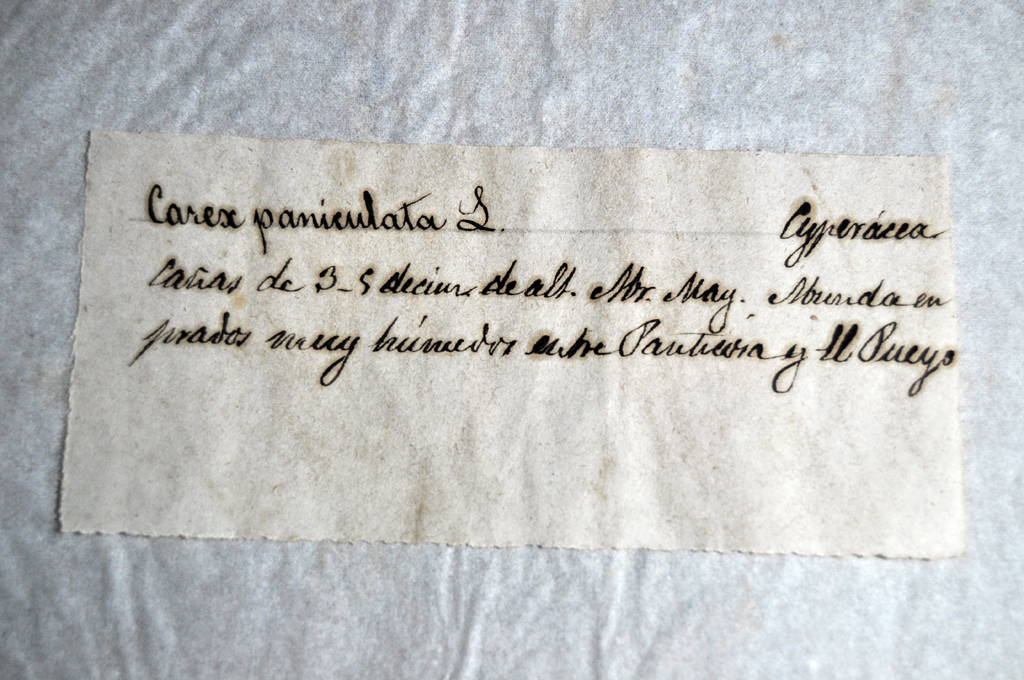 Carex paniculata L. Cyperácea.
Cañas de 3-5 decim. de alt. Abr. May. Abunda en
prados muy húmedos entre Panticosa y El Pueyo